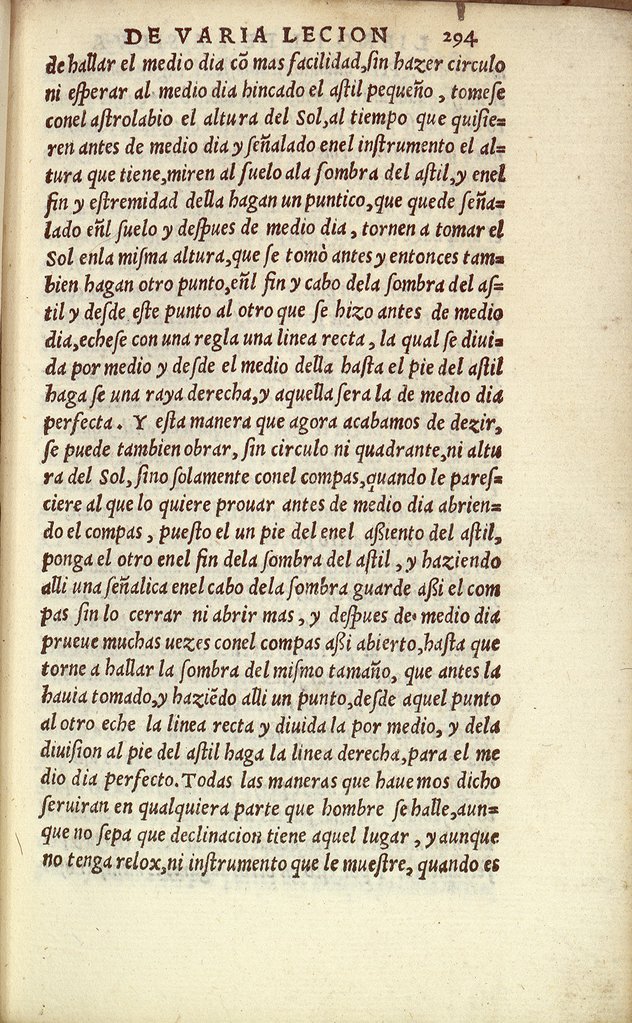 DE VARIA LECION 294
de hallar el medio dia cõ mas facilidad,ſin hazer circulo
ni eſperar al medio dia hincado el aſtil pequeño, tomeſe
conel aſtrolabio el altura del Sol,al tiempo que quiſie=
ren antes de medio dia y ſeñalado enel inſtrumento el al=
tura que tiene,miren al ſuelo ala ſombra del aſtil,y enel
fin y eſtremidad della hagan un puntico,que quede ſeña=
lado eñl ſuelo y deſpues de medio dia, tornen a tomar el
Sol enla miſma altura,que ſe tomò antes y entonces tam=
bien hagan otro punto,eñl fin y cabo dela ſombra del aſ=
til y deſde eſte punto al otro que ſe hizo antes de medio
dia,echeſe con una regla una linea recta, la qual ſe diui=
da por medio y deſde el medio della haſta el pie del aſtil
haga ſe una raya derecha,y aquella ſera la de medio dia
perfecta. Y eſta manera que agora acabamos de dezir,
ſe puede tambien obrar, ſin circulo ni quadrante,ni altu
ra del Sol,ſino ſolamente conel compas,quando le pareſ=
ciere al que lo quiere prouar antes de medio dia abrien=
do el compas, pueſto el un pie del enel aßiento del aſtil,
ponga el otro enel fin dela ſombra del aſtil, y haziendo
alli una ſeñalica enel cabo dela ſombra guarde aßi el com
pas ſin lo cerrar ni abrir mas, y deſpues de medio dia
prueue muchas uezes conel compas aßi abierto,haſta que
torne a hallar la ſombra del miſmo tamaño, que antes la
hauia tomado,y haziẽdo alli un punto,deſde aquel punto
al otro eche la linea recta y diuida la por medio, y dela
diuiſion al pie del aſtil haga la linea derecha,para el me
dio dia perfecto.Todas las maneras que hauemos dicho
ſeruiran en qualquiera parte que hombre ſe halle,aun=
que no ſepa que declinacion tiene aquel lugar, y aunque
no tenga relox,ni inſtrumento que le mueſtre, quando es